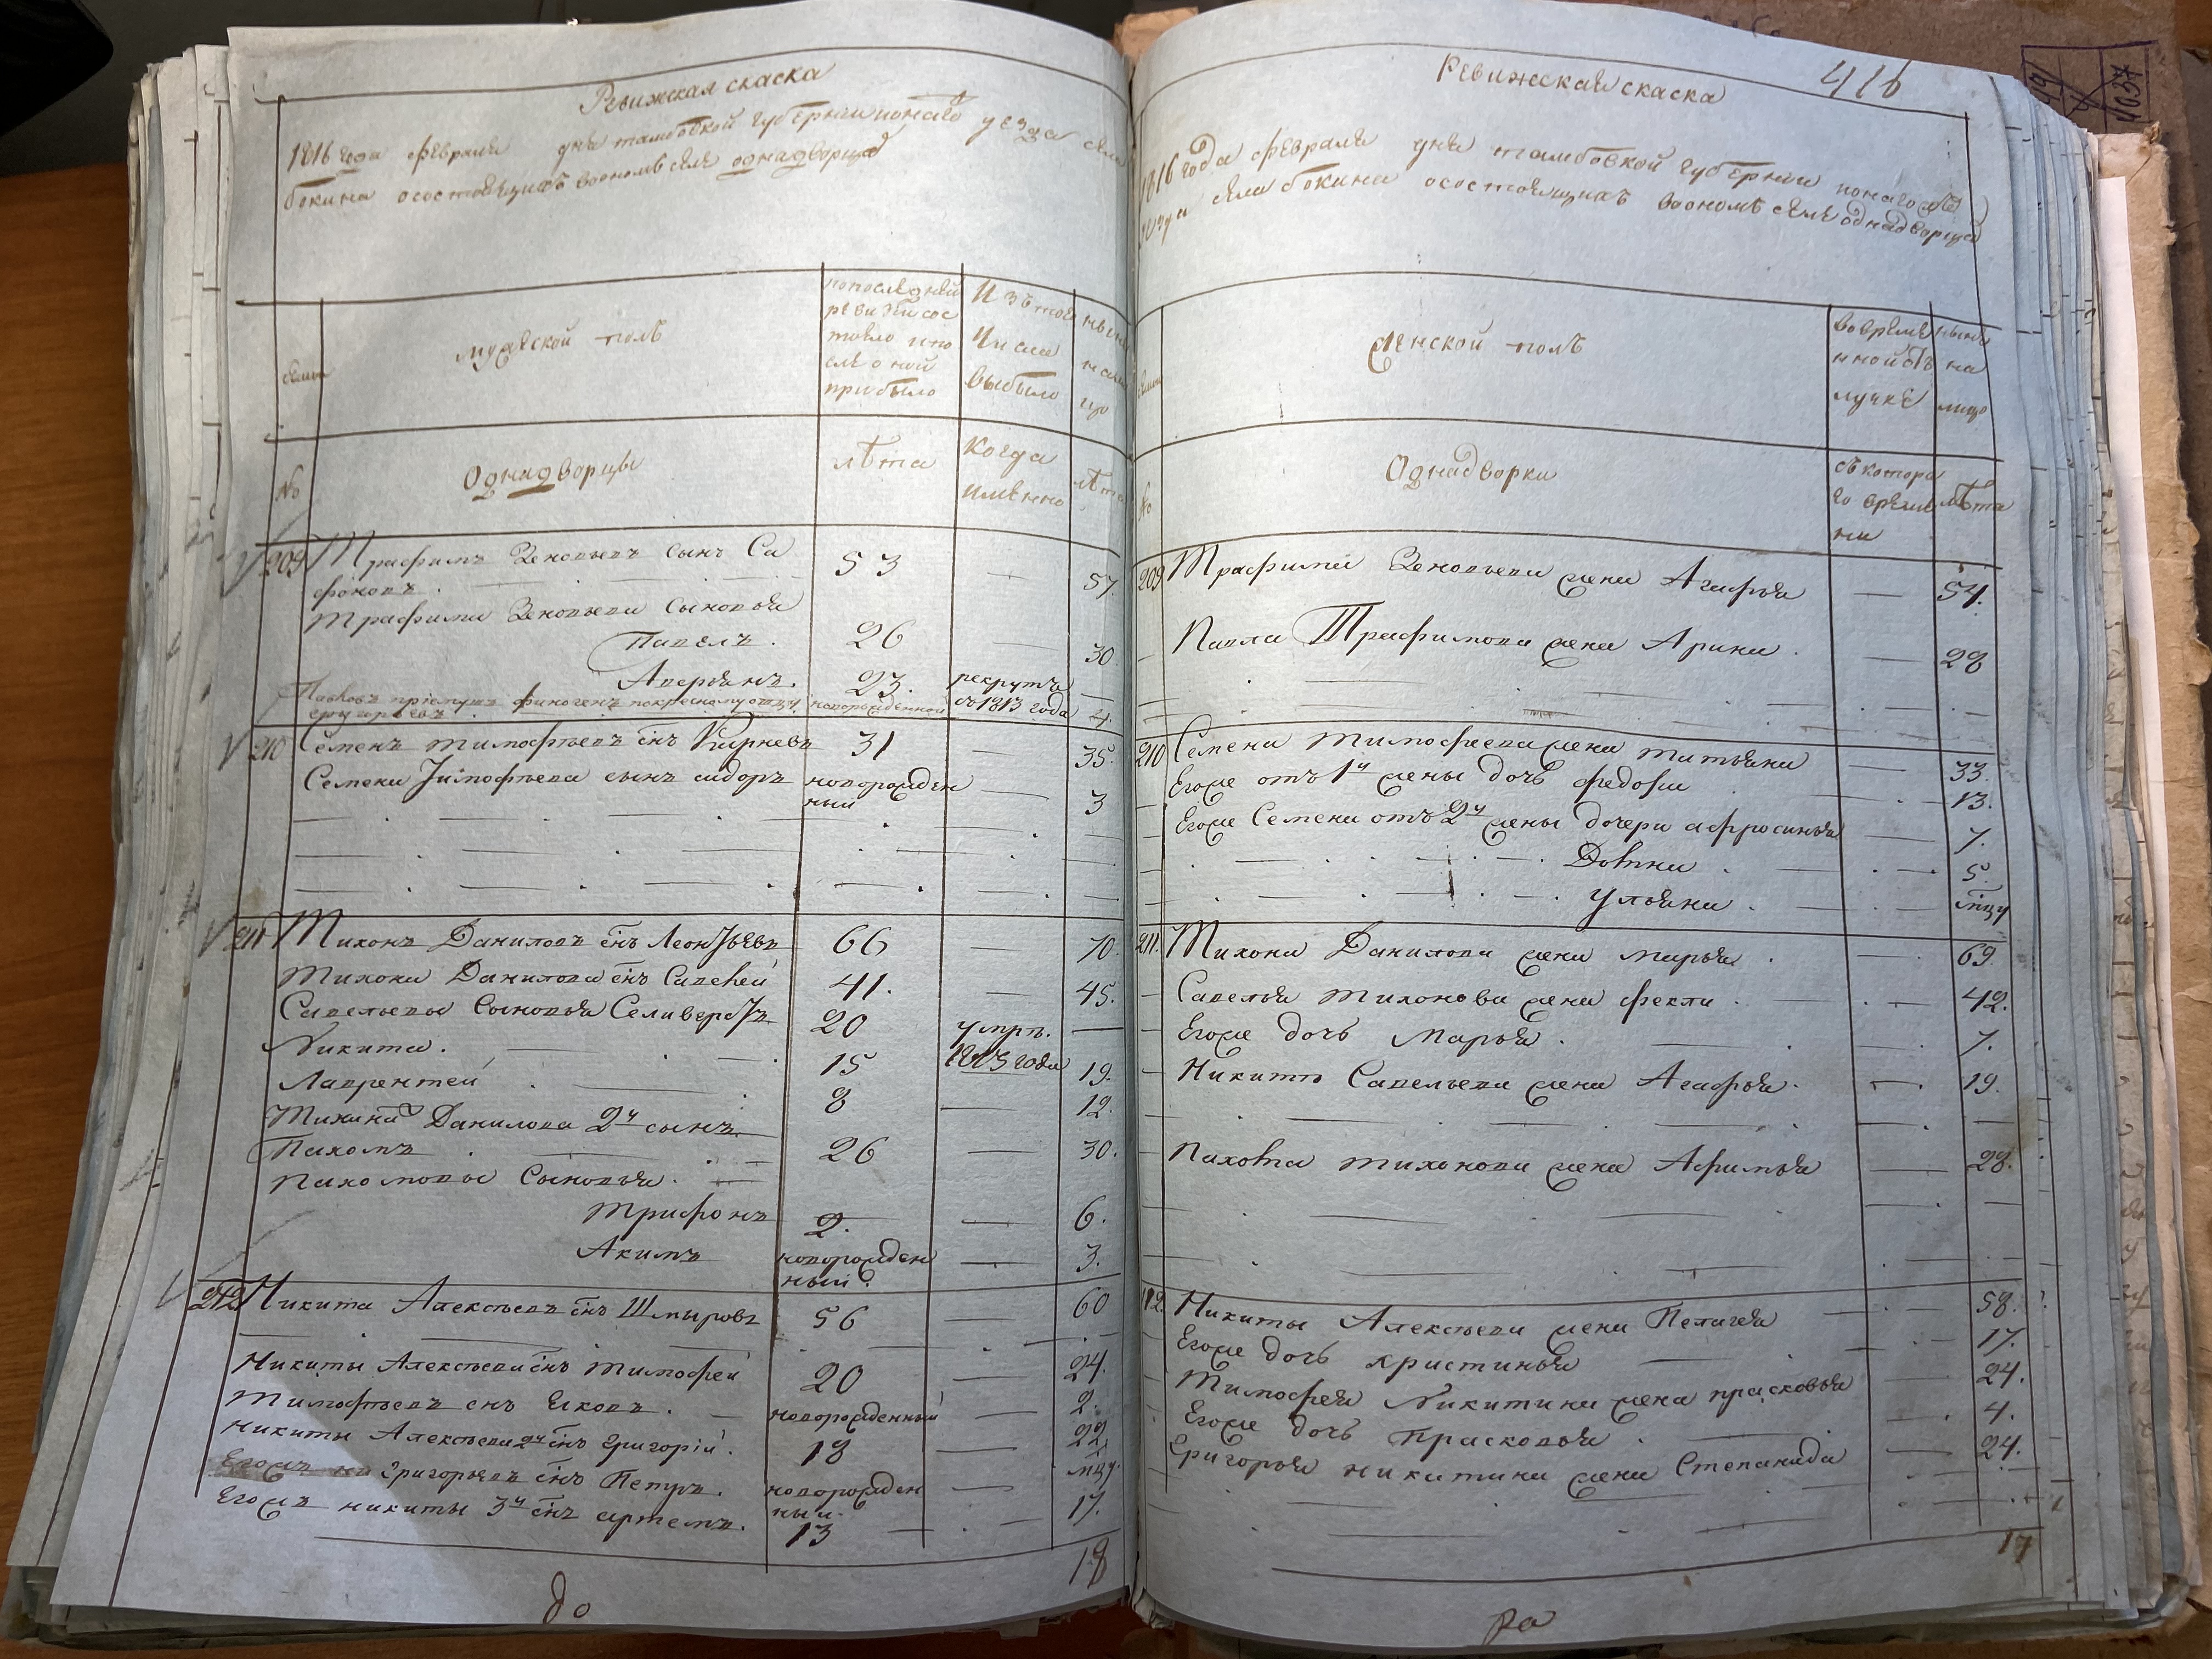 Ревижская скаска
1816 года февраля дня тамбовской губернии
бокина осостоящихъ воономъ селе однадворцовъ
мужеской полъ
попоследней
ревизии сос
тояло ипо
сле оной
прибыло
Изътого
числа
выбыло
№
Однадворцы
лѣта
Когда
имянно
лѣта
209 Трафимъ Зеновьевъ сынъ Са
фоновъ 53 — 57.
Трафима Зеновьева сыновья
Павелъ. 26 — 30
Аверьянъ. 23. рекрутъ —
новорожденной въ 1813 года 4.
210 Семенъ тимофѣевъ снъ 31 — 35.
Семена Тимофѣева сынъ сидоръ новорожден
ный — 3
211 Тихонъ Даниловъ снъ Леонтьевъ 66 — 70.
Тихона Данилова снъ Савелей 41. — 45.
Савельевы Сыновья Селиверстъ 20 умръ. —
Никита. 15 1813 года 19.
Лаврентей 8 — 12.
Данилова 2й сынъ
Пахомъ 26 — 30.
Пахомовы Сыновья.
Трифонъ 2. — 6.
Акимъ новорожден — 3.
ный.
212 Никита Алексѣевъ снъ Шмыровъ 56 — 60
Никиты Алексѣева снъ тимофей 20 — 24.
Тимофѣевъ снъ Яковъ. новорожденный — 2.
Никиты Алексѣева 2й снъ григорій. 18 — 22
григорьевъ снъ Петръ. новорожден — мцу.
ный.
Егожъ никиты 3й снъ артемъ. 13 — 17.
18
до
Ревижская скаска
416
1816 года февраля дня тамбовской губернии
уезда села бокина осостоящихъ воономъ селе однадворцовъ
женской полъ
вовремѣ
нной от
лучкѣ
нынѣ
на
лицо
№
Однадворки
съ котора
го време
ни
лѣта
209 Трафима Зеновьева жена Агафья — 54.
Павла Трафимова жена Арина. — 28
210 Семена тимофеева жена татьяна — 33.
Егоже отъ 1й жены дочь федосья 13.
Егоже Семена отъ 2й жены дочери афросинья 7.
Домна 5.
ульяна. мцу
211. Тихона Данилова жена марья. 69.
Савелья тихонова жена фекла. 42.
Егоже дочь Марья. 7.
Никиты Савельева жена Агафья. 19.
Пахома тихонова жена Афимья — 28.
212 Никиты Алексѣева жена Пелагея — 58.
Егоже дочь христинья — 17.
Тимофея Никитина жена прасковья 24.
Егоже дочь прасковья. 4.
Григорья никитина жена Степанида — 24.
17
ра